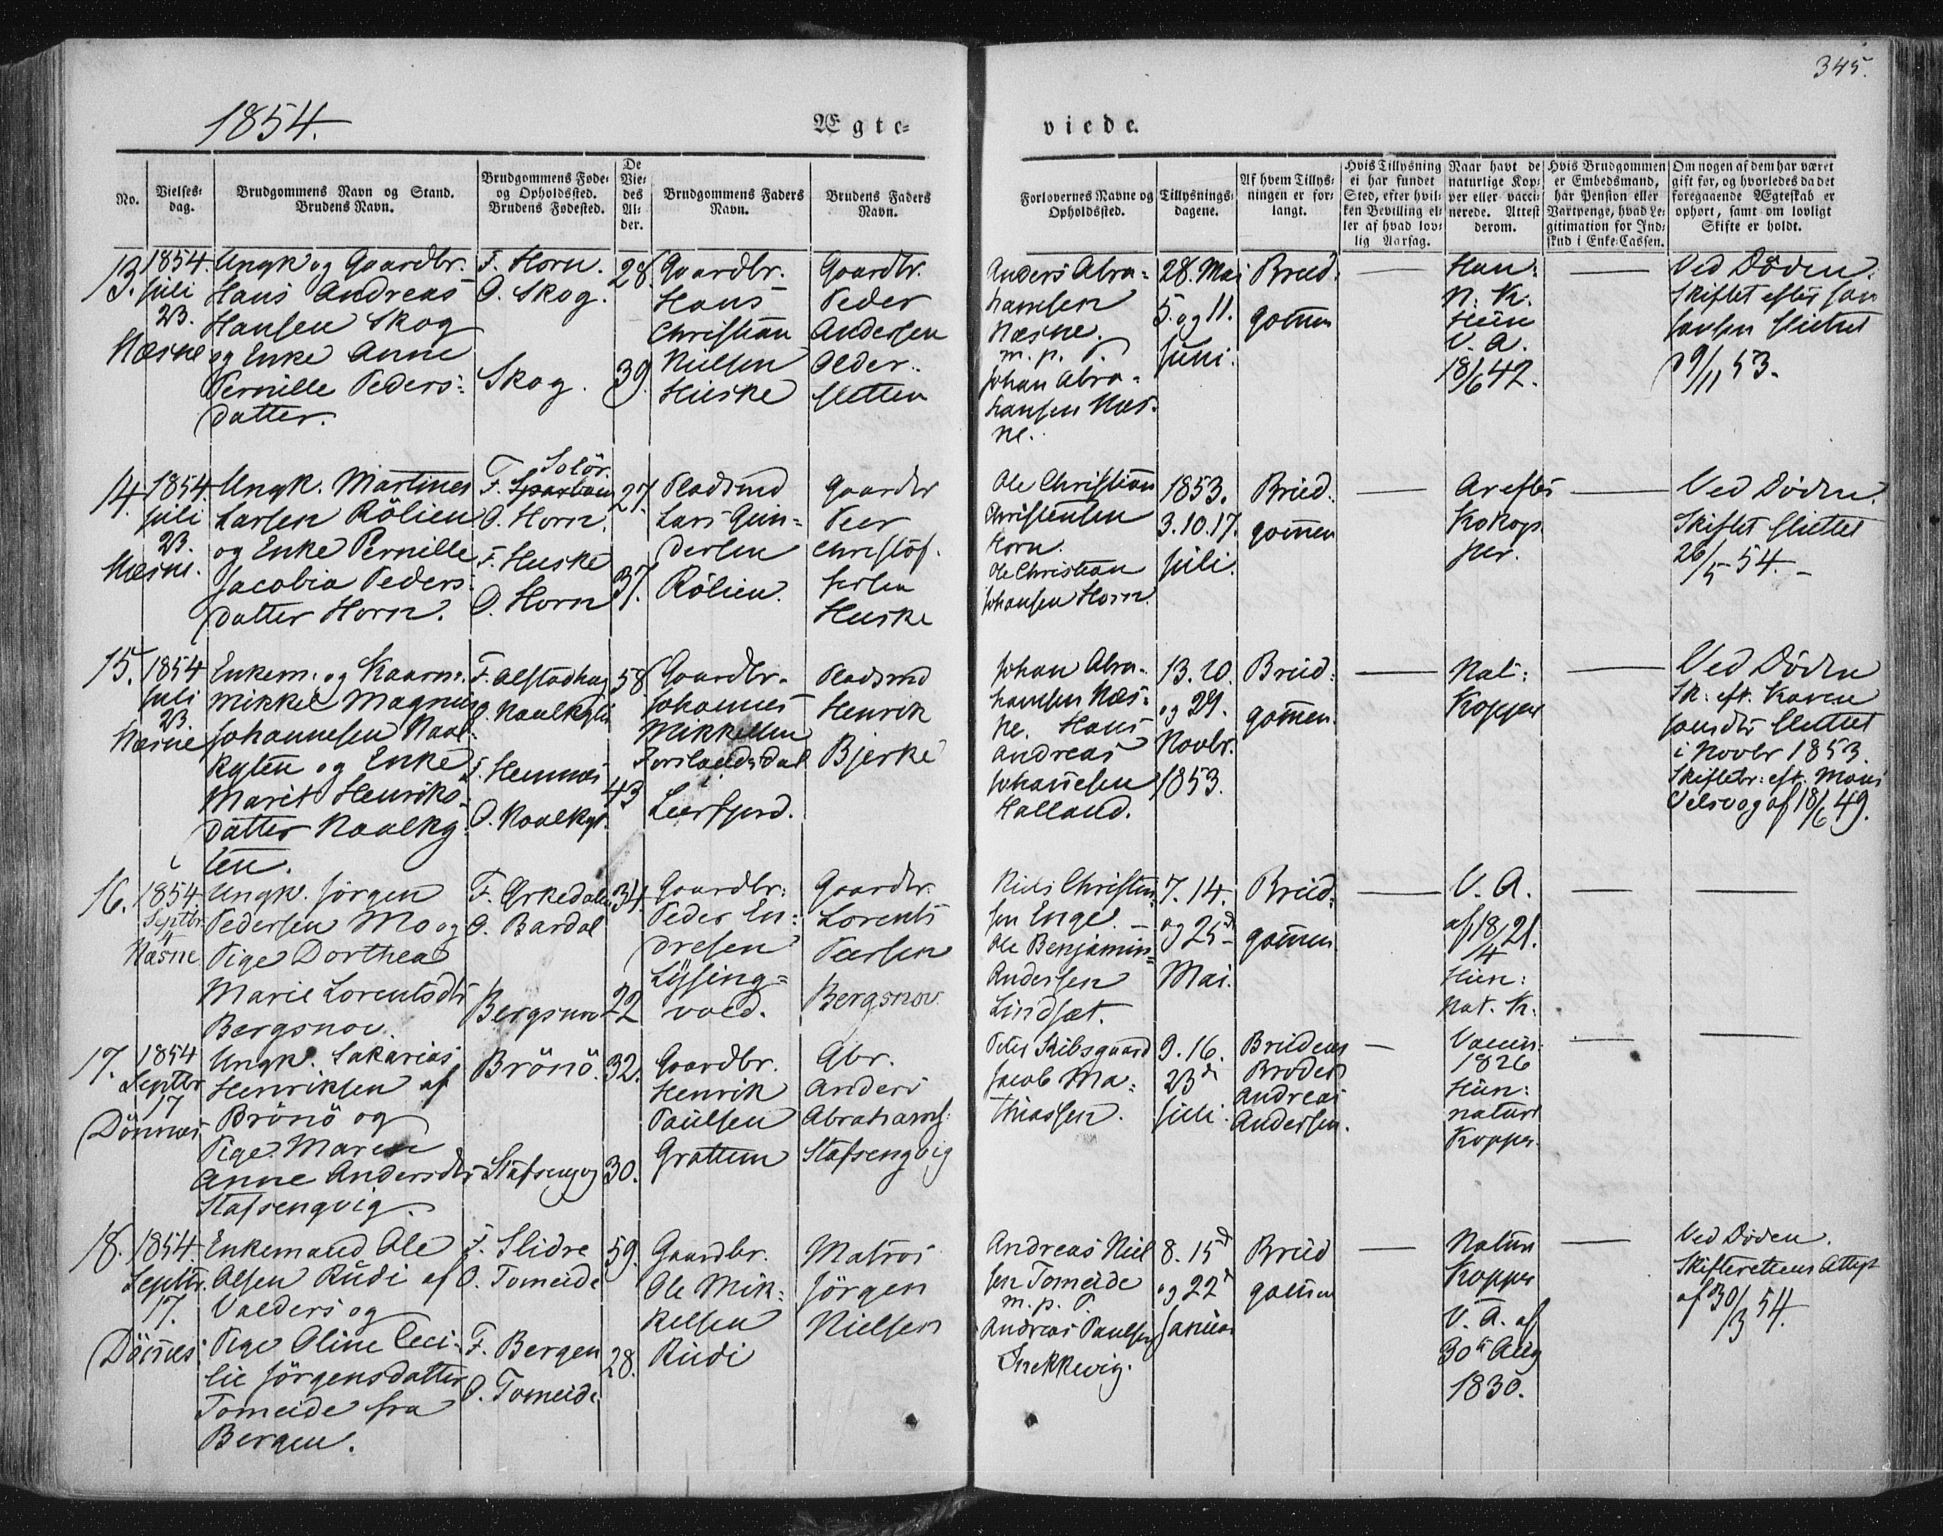 345.
1854.
Ægte-
viede.
No.
Vielses-
dag.
Brudgommens Navn og Stand.
Brudens Navn.
Brudgommens Føde-
og Opholdssted.
Brudens Fødested.
De
Vie-
des
Al-
der.
Brudgommens Faders
Navn.
Brudens Faders
Navn.
Forlovernes Navne og
Opholdssted.
Tillysnings-
dagene.
Af hvem Tillys-
ningen er for-
langt.
Hvis Tillysning
ei har fundet
Sted, efter hvil-
ken Bevilling el-
ler af hvad lov-
lig Aarsag.
Naar havt de
naturlige Kop-
per eller vacci-
nerede. Attest
derom.
Hvis Brudgommen
er Embedsmand,
har Pension eller
Vartpenge, hvad Le-
gitimation for Ind-
skud i Enke-Cassen.
Om nogen af dem har været
gift før, og hvorledes da det
foregaaende Ægteskab er
ophørt, samt om lovligt
Skifte er holdt.
13.
1854.
Juli
23.
Næsne
Ungk og Gaardbr.
Hans Andreas
Hansen Skog
og Enke Anne
Pernille Peders-
datter.
F. Horn.
O. Skog.
Skog.
28.
39.
Gaardbr.
Hans
Christian
Nielsen
Huske
Gaardbr.
Peder
Andersen
Older-
sletten
Anders Abra-
hamsen
Næsne.
m. p. P.
Johan Abra-
hamsen Næs-
ne.
28. Mai
5. og 11.
Juni.
Brud-
gommen
Han:
N. K.
Hun
V. A.
18/6 42.
Ved Døden.
Skiftet efter Jan
Jansen sluttet
9/11 53.
14.
1854
Juli
23.
Næsne.
Ungk. Martines
Larsen Rölien
og Enke Pernille
Jacobia Peders-
datter Horn.
Solör
F. Sparboen
O. Horn.
F. Huske
O. Horn
27.
37.
Pladsmd
Lars Gun-
dersen
Rölien.
Gaardbr
Peer
Christof-
fersen
Huske
Ole Christian
Christensen
Horn.
Ole Christian
Johansen Horn.
1853.
3.10.17.
Juli.
Brud-
gommen
Ar efter
Kokop-
per.
Ved Døden.
Skiftet sluttet
26/5 54.
15.
1854
Juli
23.
Næsne
Enkem. og Kaarm.
Mikkel Magnus
Johannesen Naal-
kyten og Enke
Marit Henriks-
datter Naalky-
ten.
F. Alstadhaug
O. Naalkyten
F. Hemnæs
O. Naalkyt.
58.
43
Gaardbr.
Johannes
Mikkelsen
Forslandsdal
i
Leerfjord.
Pladsmd
Henrik
Bjerke
Johan Abra-
hamsen Næs-
ne. Hans
Andreas
Johannesen
Halland.
13. 20.
og 29.
Novbr.
1853.
Brud-
gommen.
Nat:
Kopper
Ved Døden
Sk. eft. Karen
Jansdtr sluttet
i Novbr 1853.
Skiftebr: eft. Mons
Velsvog af 18/6 49.
16.
1854.
Septbr
4
Næsne
Ungk. Jørgen
Pedersen Mo og
Pige Dorthea
Marie Lorentsdtr
Bergsnov.
F. Orkedalen
O. Bardal
Bergsnov
34.
22
Gaardbr:
Peder En-
dresen
Lysing-
vold.
Gaardbr.
Lorents
Persen
Bergsnov
Niels Christen-
sen Enge.
Ole Benjamin
Andersen
Lindsæt.
7. 14.
og 25d
Mai.
Brud-
gommen
V. A.
af 18/4 21.
Hun:
Nat. K.
17.
1854
Septbr
17
Dönnæs
Ungk. Sakarias
Henriksen af
Brönö og
Pige Maren
Anne Andersdtr
Stafsengvig.
Brönö.
Stafsengvig
32.
30.
Gaardbr.
Henrik
Paulsen
Grattem
Abr.
Anders
Abrahams.
Stafsengvig
Peter Skibsgaard
Jacob Ma-
thiassen.
9. 16.
23d
Juli
Brudens
Broder
Andreas
Andersen.
Vaccin:
1826
Hun:
naturl
Kopper.
18.
1854
Septbr.
17.
Dönnes.
Enkemand Ole
Olsen Rudi af
Valders og
Pige Oline Ceci-
lie Jørgensdatter
Tomeide fra
Bergen.
F. Slidre
O. Tomeide
F. Bergen
O. Tomeide
59.
28.
Gaardbr.
Ole Mik-
kelsen
Rudi
Matros
Jørgen
Nielsen
Andreas Niel
sen Tomeide
m. p. P.
Andreas Paulsen
Snekkevig.
8. 15d
og 22d
Januar
Brud
gommen
Naturl
Kopper
V. A. af
30te Aug
1830.
Ved Døden.
Skifterettens Attest
af 30/3 54.